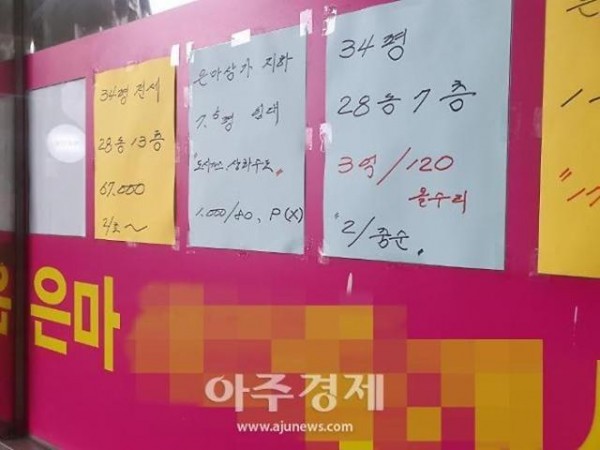 34평 전세
28동 13층
67.000
2/초~
은마상가 지하
7.5평 임대
"도시가스, 상하수도"
1.000/80, P(X)
34평
28동 7층
3억/120
올수리
"2/중순"
은마
아주경제
www.ajunews.com